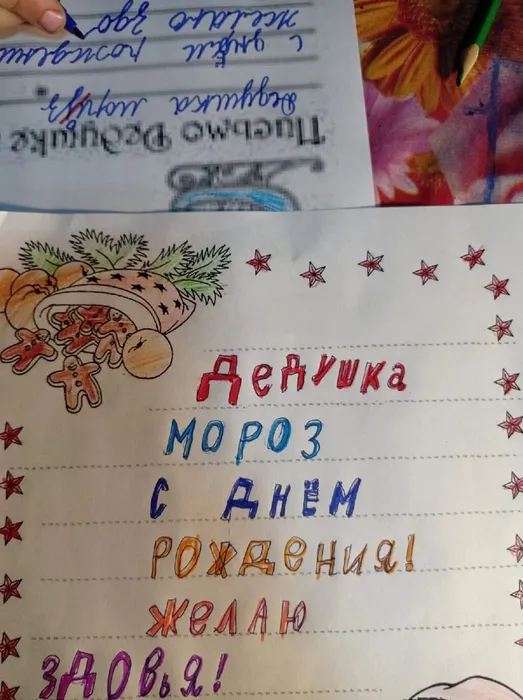 Письмо Дедушке
Дедушка мороз
с днём рождени
желаю здо
ДЕДУШКА
МОРОЗ
С ДНЁМ
РОЖДЕНИЯ!
ЖЕЛАЮ
ЗДОВЬЯ!